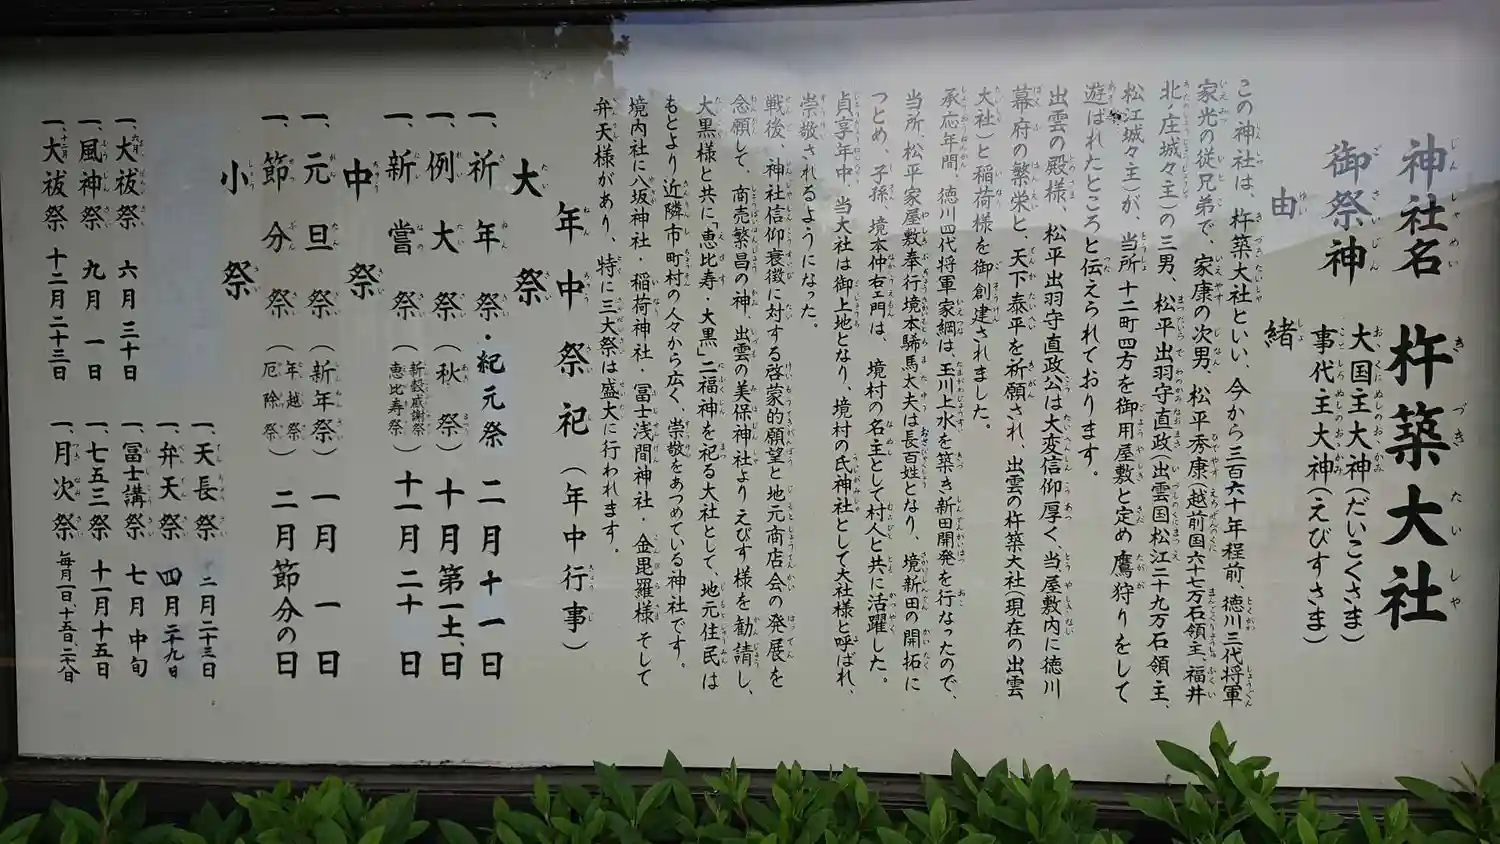 神社名 杵築大社
御祭神 大国主大神(だいこくさま)
事代主大神(えびすさま)
由緒
この神社は、杵築大社といい、今から三百六十年程前、徳川三代将軍
家光の従兄弟で、家康の次男、松平秀康(越前国六十七万石領主、福井
北ノ庄城々主)の三男、松平出羽守直政(出雲国松江二十九万石領主、
松江城々主)が、当所十二町四方を御用屋敷と定め鷹狩りをして
遊ばれたところと伝えられております。
出雲の殿様 松平出羽守直政公は大変信仰厚く、当屋敷内に徳川
幕府の繁栄と、天下泰平を祈願され、出雲の杵築大社(現在の出雲
大社)と稲荷様を御創建されました。
承応年間、徳川四代将軍家綱は、玉川上水を築き新田開発を行なったので、
当所松平家屋敷奉行境本騎馬太夫は長百姓となり、境新田の開拓に
つとめ、子孫、境本仲右ェ門は、境村の名主として村人と共に活躍した。
貞享年中、当大社は御上地となり、境村の氏神社として大社様と呼ばれ、
崇敬されるようになった。
戦後、神社信仰衰微に対する啓蒙的願望と地元商店会の発展を
念願して、商売繁昌の神、出雲の美保神社よりえびす様を勧請し、
大黒様と共に「恵比寿・大黒」二福神を祀る大社として、地元住民は
もとより近隣市町村の人々から広く、崇敬をあつめている神社です。
境内社に八坂神社・稲荷神社・冨士浅間神社・金毘羅様 そして
弁天様があり、特に三大祭は盛大に行われます。
年中祭祀(年中行事)
大祭
一、祈年祭・紀元祭 二月十一日
一、例大祭(秋祭) 十月第一土、日
一、新嘗祭(新穀感謝祭 恵比寿祭) 十一月二十日
中祭
一、元旦祭(新年祭) 一月一日
一、節分祭(年越祭 厄除祭) 二月節分の日
小祭
一、天長祭 二月二十三日
一、弁天祭 四月二十九日
一、六月大祓祭 六月三十日
一、冨士講祭 七月中旬
一、風神祭 九月一日
一、七五三祭 十一月十五日
一、十二月大祓祭 十二月二十三日
一、月次祭 毎月一日、十五日、二十八日